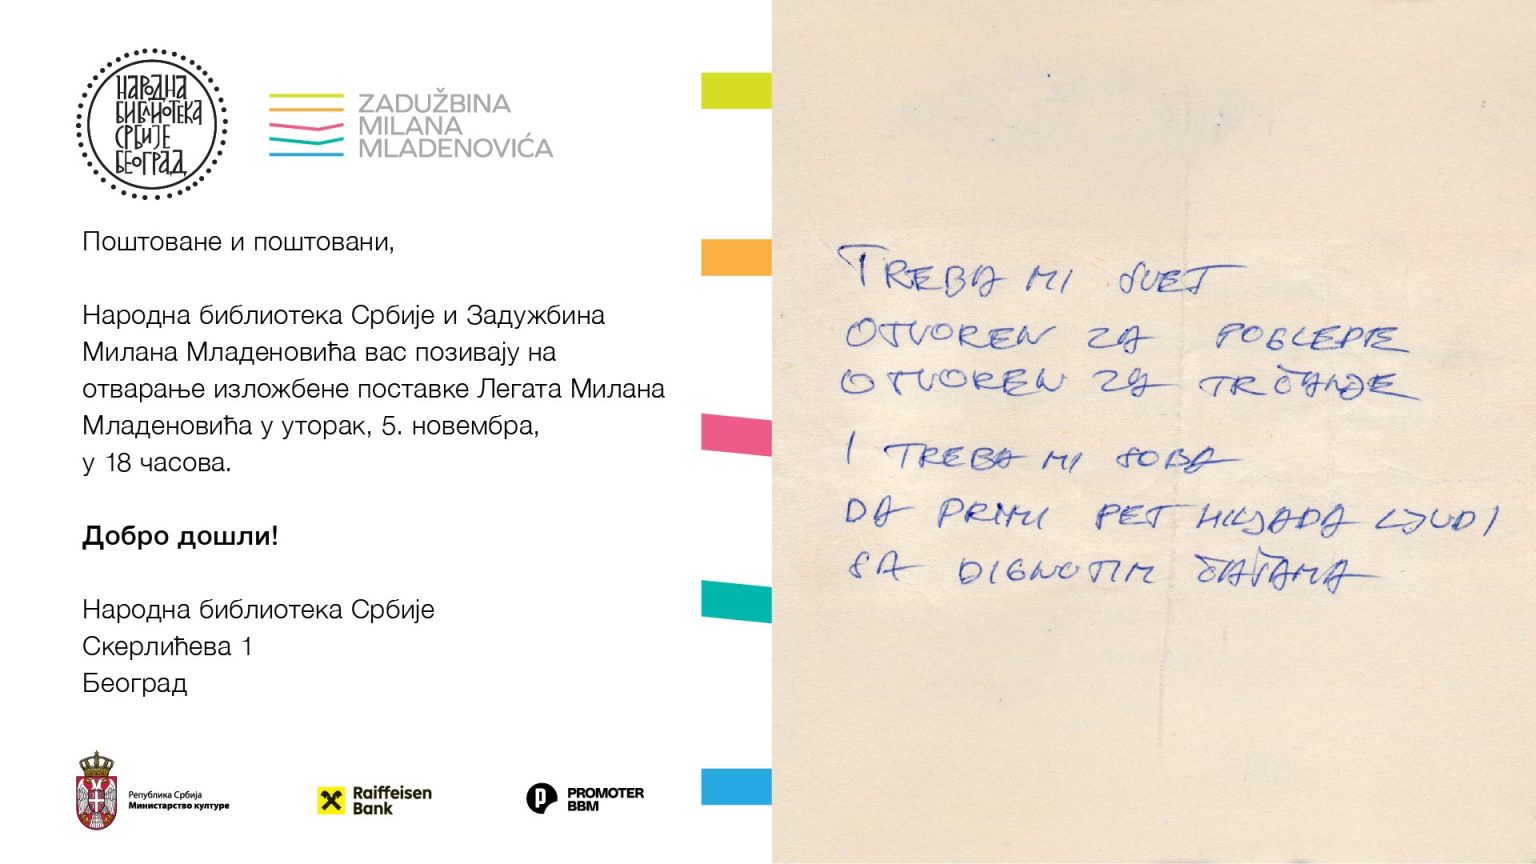 НАРОДНА
БИБЛИОТЕКА
СРБИЈЕ
БЕОГРАД
ZADUŽBINA
MILANA
MLADENOVIĆA
Поштоване и поштовани,
Народна библиотека Србије и Задужбина
Милана Младеновића вас позивају на
отварање изложбене поставке Легата Милана
Младеновића у уторак, 5. новембра,
у 18 часова.
Добро дошли!
Народна библиотека Србије
Скерлићева 1
Београд
Република Србија
Министарство културе
Raiffeisen
Bank
PROMOTER
BBM
TREBA MI SVET
OTVOREN ZA POGLEDE
OTVOREN ZA TRČANJE
I TREBA MI SOBA
DA PRIMI PET HILJADA LJUDI
SA DIGNUTIM ČAŠAMA